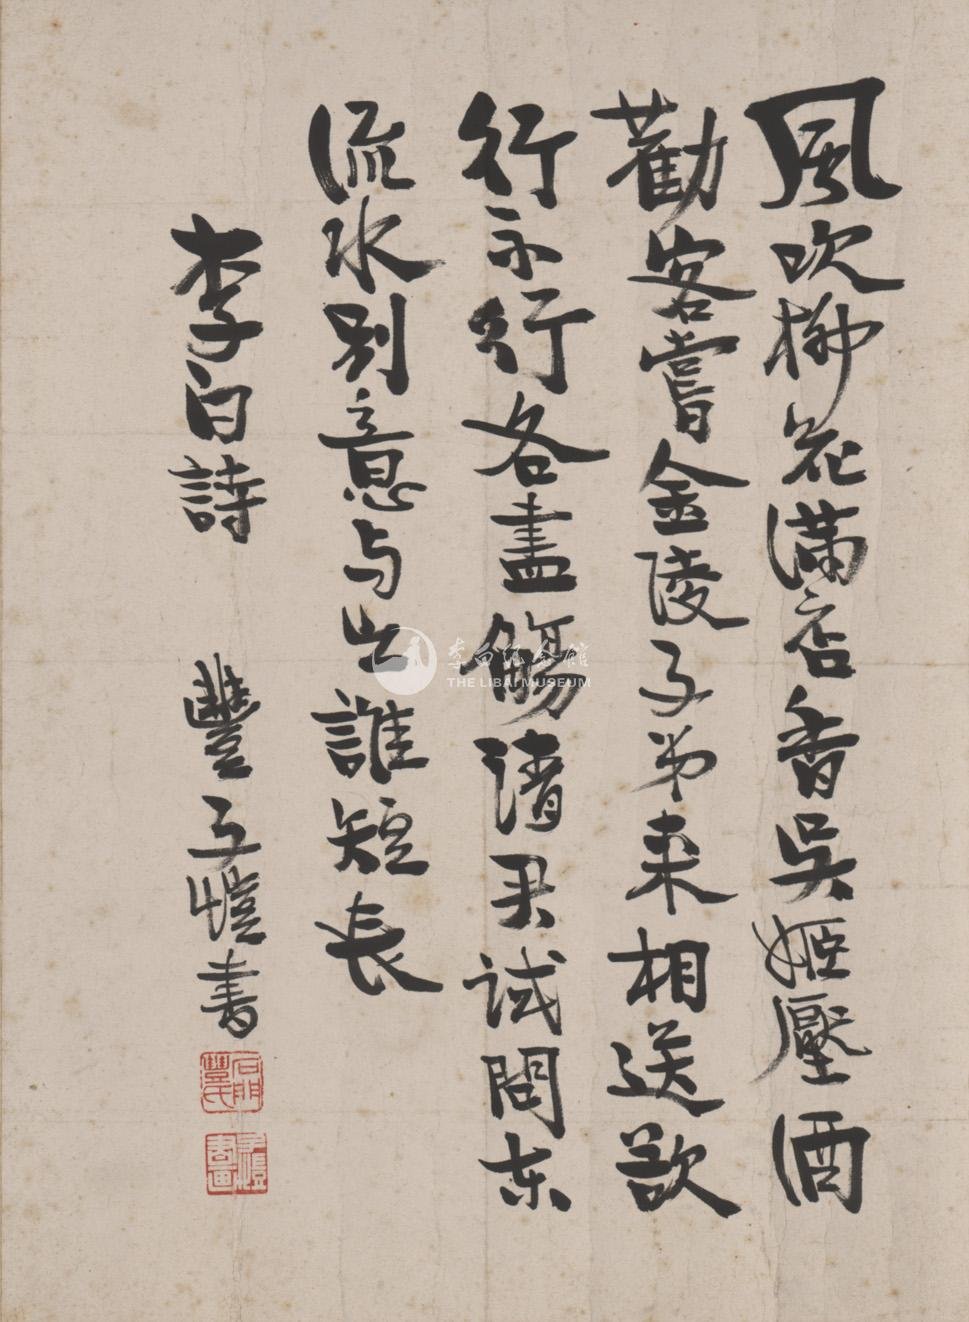 風吹柳花滿店香吳姬壓酒
勸客嘗金陵子弟来相送欲
行不行各盡觴請君試問东
流水别意与之誰短長
李白詩 豐子愷書
石門豐氏
子愷書畫
李白纪念館
THE LIBAI MUSEUM